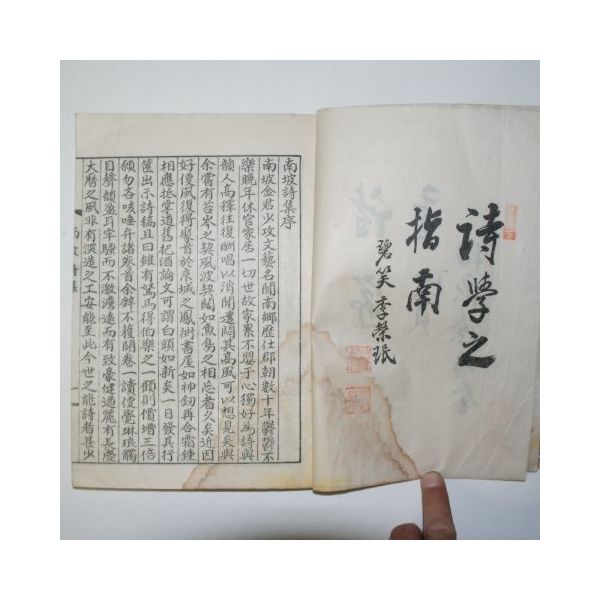 詩學之
指南
碧笑 李榮珉
南坡詩集序
南坡金君少攻文藝名聞南鄉歷仕郡朝數十年鬱鬱不
樂晚年休官家居一切世故家累不嬰于心獨好為詩與
韻人高釋往復酬唱以消閒遣悶其高風可以想見矣與
余嘗有苔岑之契風波契闊如魚鳥之相忘者久矣近因
好便風復得聚首於京城之鳳術書屋如神劒再合霜鍾
相應抵掌道舊把酒論文可謂白頭如新矣一日發其行
篋出示詩稿且曰雖有駑馬得伯樂之一顧則價增三倍
願勿吝咳唾弁諸卷首余辭不獲開卷一讀便覺琳琅觸
目聲韻盈耳牢騷而不激澹遠而有致豪健遒麗有長慶
大曆之風非有深造之工安能至此今世之能詩者甚少
南坡詩集